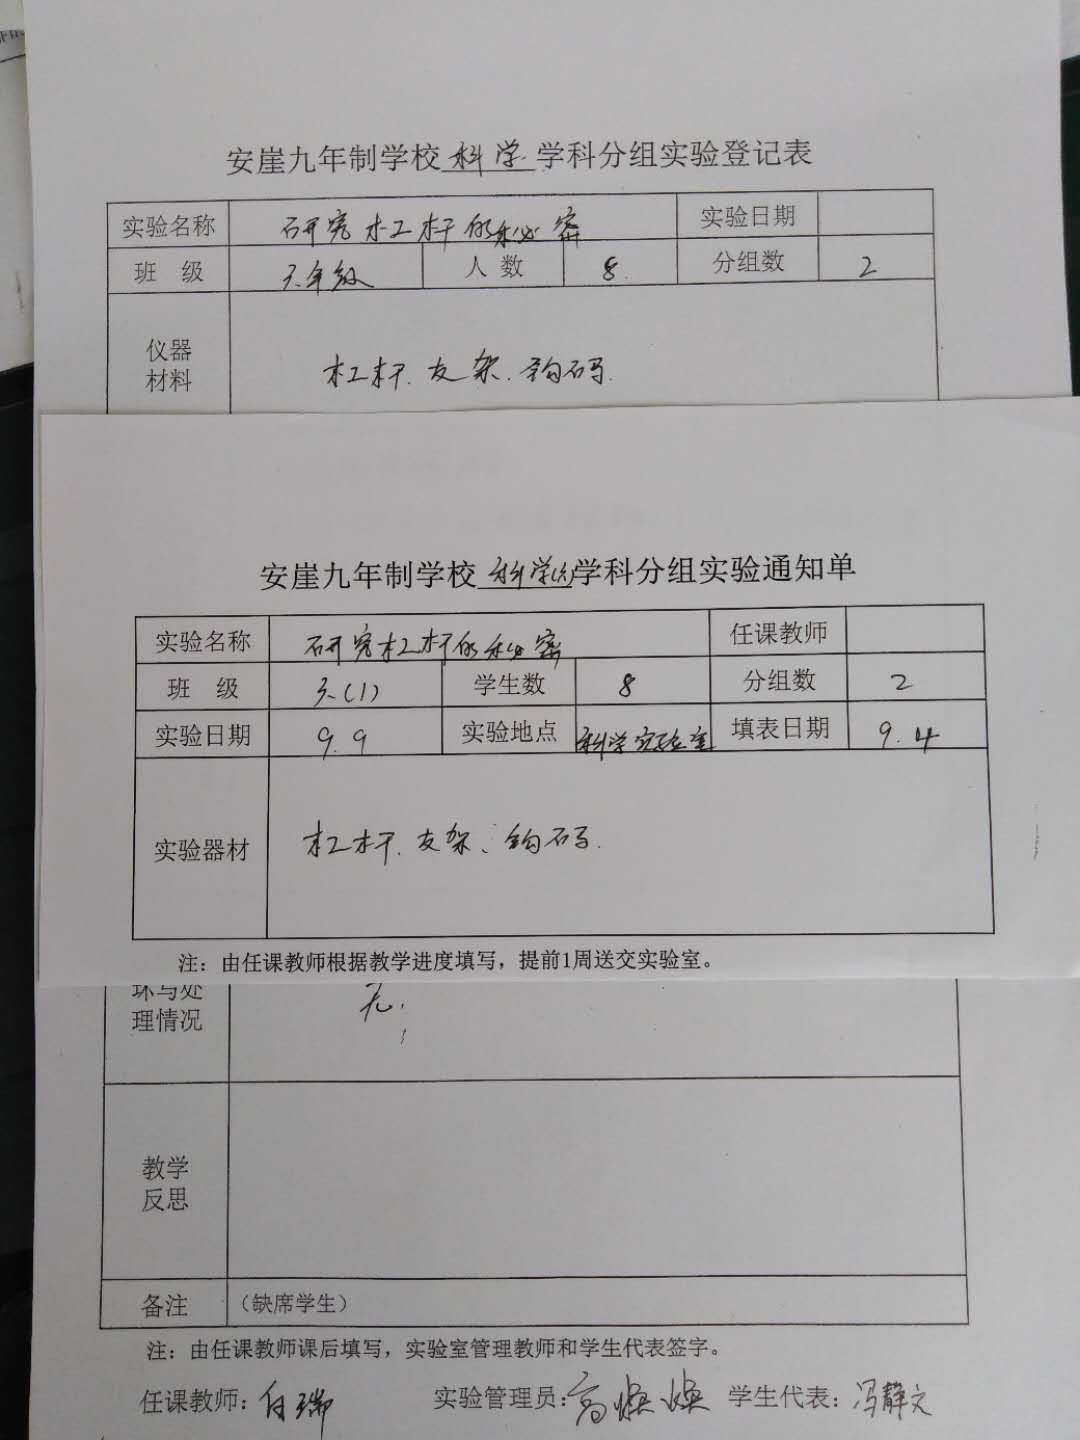 安崖九年制学校 科学 学科分组实验登记表
实验名称 研究杠杆的秘密 实验日期
班 级 六年级 人数 8. 分组数 2
仪器
材料
杠杆、支架、钩码.
安崖九年制学校 科学(六) 学科分组实验通知单
实验名称 研究杠杆的秘密 任课教师
班 级 六(1) 学生数 8 分组数 2
实验日期 9.9 实验地点 科学实验室 填表日期 9.4
实验器材 杠杆、支架、钩码.
注：由任课教师根据教学进度填写，提前1周送交实验室。
坏与处
理情况
无.
教学
反思
备注 （缺席学生）
注：由任课教师课后填写，实验室管理教师和学生代表签字。
任课教师：白瑞 实验管理员：高焕焕 学生代表：冯静文